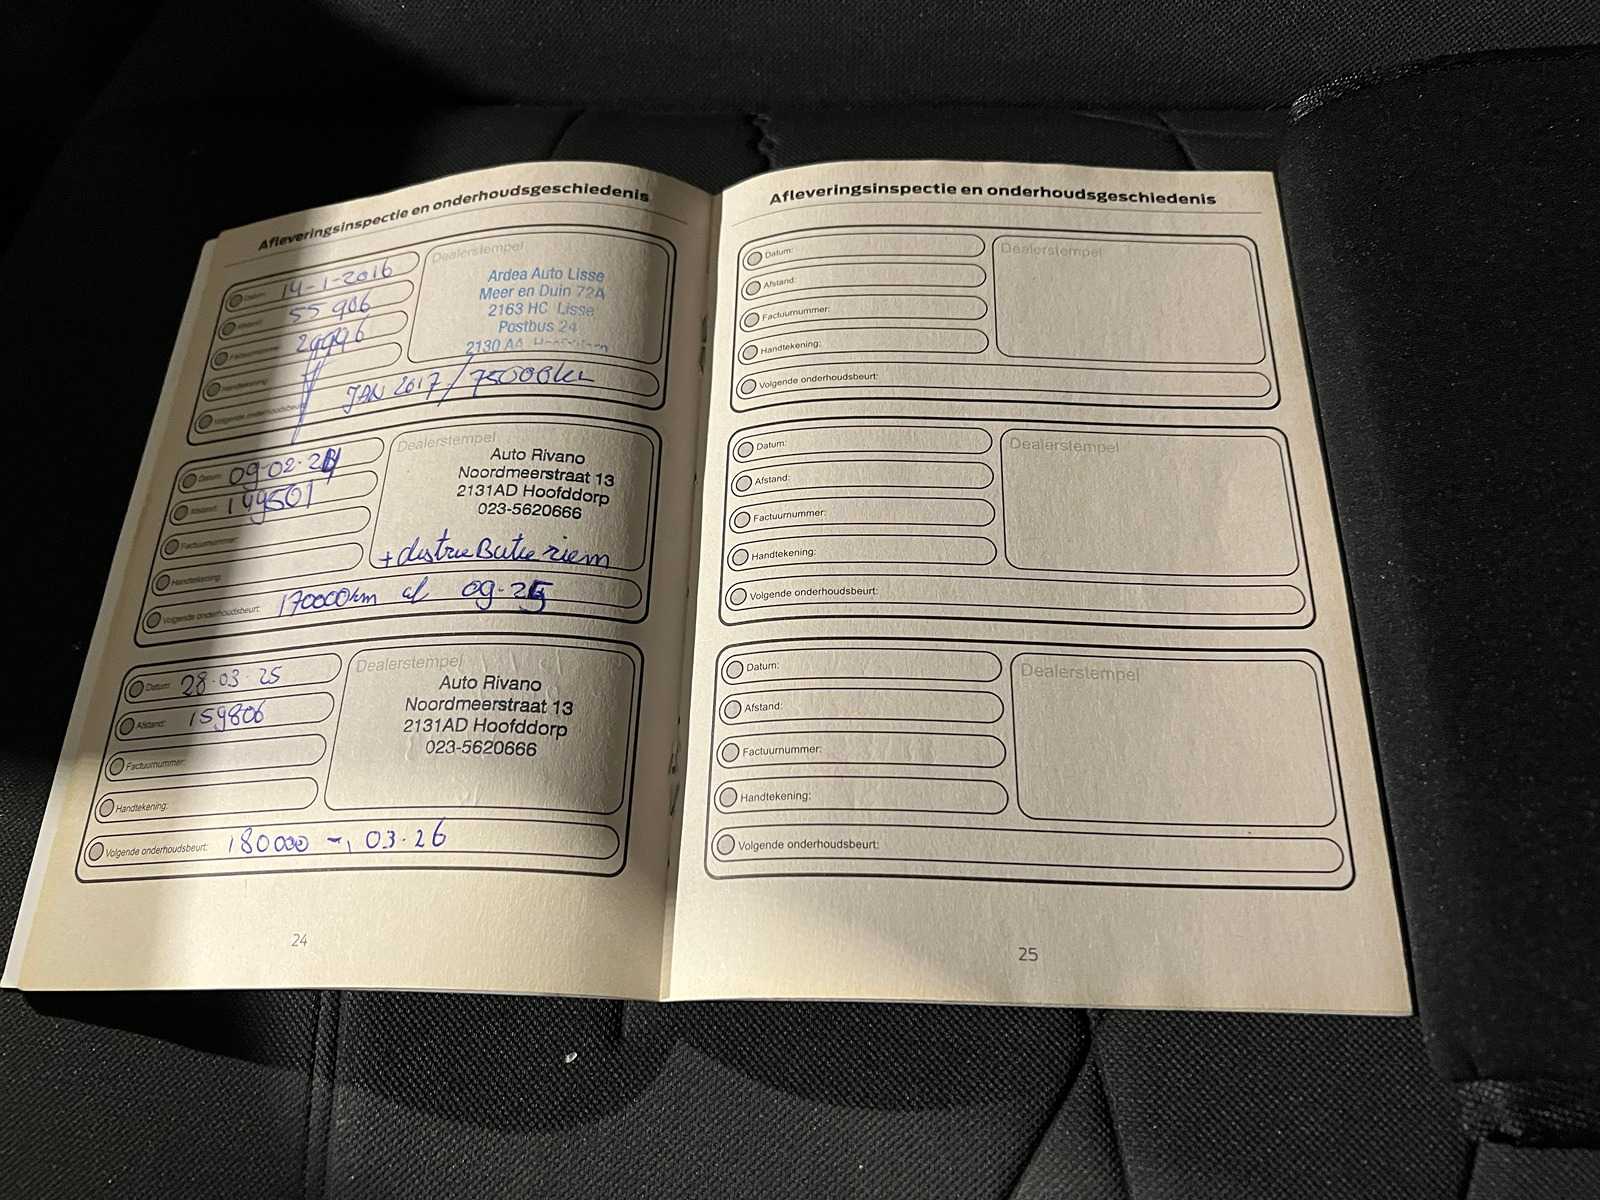 Afleveringsinspectie en onderhoudsgeschiedenis
Datum: 14-1-2016
Afstand: 55 906
Factuurnummer: 29996
Handtekening:
Volgende onderhoudsbeurt: JAN 2017 / 75000km
Dealerstempel
Ardea Auto Lisse
Meer en Duin 72A
2163 HC Lisse
Postbus 24
2130 AA
Datum: 09-02-24
Afstand: 149501
Factuurnummer:
Handtekening:
Volgende onderhoudsbeurt: 170000km of 09-25
Dealerstempel
Auto Rivano
Noordmeerstraat 13
2131AD Hoofddorp
023-5620666
+ distributie riem
Datum: 28-03-25
Afstand: 159806
Factuurnummer:
Handtekening:
Volgende onderhoudsbeurt: 180000 -, 03-26
Dealerstempel
Auto Rivano
Noordmeerstraat 13
2131AD Hoofddorp
023-5620666
24
Afleveringsinspectie en onderhoudsgeschiedenis
Datum:
Afstand:
Factuurnummer:
Handtekening:
Volgende onderhoudsbeurt:
Dealerstempel
Datum:
Afstand:
Factuurnummer:
Handtekening:
Volgende onderhoudsbeurt:
Dealerstempel
Datum:
Afstand:
Factuurnummer:
Handtekening:
Volgende onderhoudsbeurt:
Dealerstempel
25